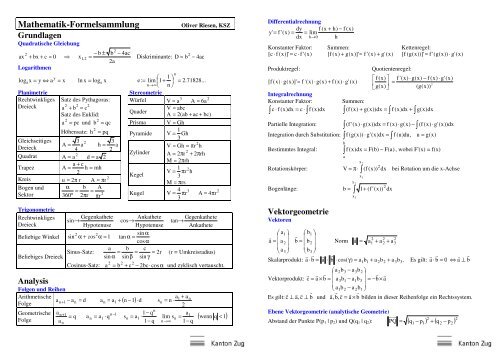 Mathematik-Formelsammlung Oliver Riesen, KSZ
Grundlagen
Quadratische Gleichung
ax² + bx + c = 0 ⇒ x₁,₂ = (−b ± √(b² − 4ac)) / 2a Diskriminante: D = b² − 4ac
Logarithmen
logₐ x = y ⇔ aʸ = x ln x = logₑ x e := lim n→∞ (1 + 1/n)ⁿ = 2.71828...
Planimetrie
Rechtwinkliges Dreieck
Satz des Pythagoras:
a² + b² = c²
Satz des Euklid:
a² = pc und b² = qc
Höhensatz: h² = pq
Gleichseitiges Dreieck A = √3/4 a² h = √3/2 a
Quadrat A = a² d = a√2
Trapez A = (a + c)/2 · h = mh
Kreis u = 2πr A = πr²
Bogen und Sektor α/360° = b/2πr = A/πr²
Stereometrie
Würfel V = a³ A = 6a²
Quader V = abc
A = 2(ab + ac + bc)
Prisma V = Gh
Pyramide V = 1/3 Gh
Zylinder V = Gh = πr²h
A = 2πr² + 2πrh
M = 2πrh
Kegel V = 1/3 πr²h
M = πrs
Kugel V = 4/3 πr³ A = 4πr²
Trigonometrie
Rechtwinkliges Dreieck sin = Gegenkathete/Hypotenuse cos = Ankathete/Hypotenuse tan = Gegenkathete/Ankathete
Beliebige Winkel sin² α + cos² α = 1 tan α = sin α/cos α
Beliebiges Dreieck Sinus-Satz: a/sin α = b/sin β = c/sin γ = 2r (r = Umkreisradius)
Cosinus-Satz: a² = b² + c² − 2bc · cos α und zyklisch vertauscht.
Analysis
Folgen und Reihen
Arithmetische Folge aₙ₊₁ − aₙ = d aₙ = a₁ + (n − 1) · d sₙ = n · (a₁ + aₙ)/2
Geometrische Folge aₙ₊₁/aₙ = q aₙ = a₁ · qⁿ⁻¹ sₙ = a₁ · (1 − qⁿ)/(1 − q) lim n→∞ sₙ = a₁/(1 − q) (wenn |q| < 1)
Kanton Zug
Differentialrechnung
y' = f'(x) = dy/dx = lim h→0 (f(x + h) − f(x))/h
Konstanter Faktor: Summen: Kettenregel:
[c · f(x)]' = c · f'(x) [f(x) + g(x)]' = f'(x) + g'(x) [f(g(x))]' = f'(g(x)) · g'(x)
Produktregel: Quotientenregel:
[f(x) · g(x)]' = f'(x) · g(x) + f(x) · g'(x) [f(x)/g(x)]' = (f'(x) · g(x) − f(x) · g'(x))/(g(x))²
Integralrechnung
Konstanter Faktor: Summen:
∫c · f(x)dx = c · ∫f(x)dx ∫(f(x) + g(x))dx = ∫f(x)dx + ∫g(x)dx
Partielle Integration: ∫(f'(x) · g(x))dx = f(x) · g(x) − ∫(f(x) · g'(x))dx
Integration durch Substitution: ∫f(g(x)) · g'(x)dx = ∫f(u)du, u = g(x)
Bestimmtes Integral: ∫ₐᵇ f(x)dx = F(b) − F(a), wobei F'(x) = f(x)
Rotationskörper: V = π ∫ (f(x))² dx bei Rotation um die x-Achse
Bogenlänge: b = ∫ √(1 + (f'(x))²) dx
Vektorgeometrie
Vektoren
a⃗ = (a₁ a₂ a₃) b⃗ = (b₁ b₂ b₃) Norm |a⃗| = √(a₁² + a₂² + a₃²)
Skalarprodukt: a⃗ · b⃗ = |a⃗| · |b⃗| · cos(γ) = a₁b₁ + a₂b₂ + a₃b₃. Es gilt: a⃗ · b⃗ = 0 ⇔ a⃗ ⊥ b⃗
Vektorprodukt: c⃗ = a⃗ × b⃗ = (a₂b₃ − a₃b₂ a₃b₁ − a₁b₃ a₁b₂ − a₂b₁) = −b⃗ × a⃗
Es gilt c⃗ ⊥ a⃗, c⃗ ⊥ b⃗ und a⃗, b⃗, c⃗ = a⃗ × b⃗ bilden in dieser Reihenfolge ein Rechtssystem.
Ebene Vektorgeometrie (analytische Geometrie)
Abstand der Punkte P(p₁ | p₂) und Q(q₁ | q₂): |PQ| = √((q₁ − p₁)² + (q₂ − p₂)²)
Kanton Zug